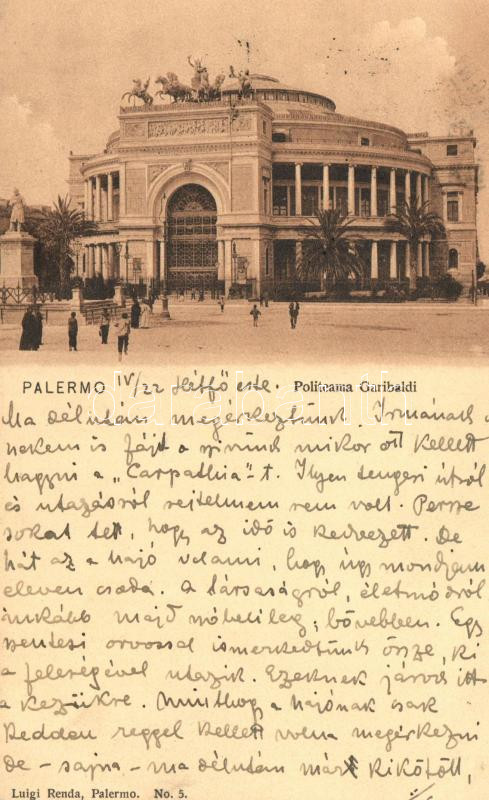 PALERMO IV/22 Hétfő este. Politeama Garibaldi
Ma délután megérkeztünk. Irmának
nekem is fájt a szivünk mikor ott kellett
hagyni a „Carpathia"-t. Ilyen tengeri útról
és utazásról sejtelmem sem volt. Persze
sokat tett, hogy az idő is kedvezett. De
hát az a hajó valami, hogy úgy mondjam
eleven csoda. A társaságról, életmódról
inkább majd szóbelileg, bővebben. Egy
szentesi orvossal ismerkedtünk össze, ki
a feleségével utazik. Ezeknek járod itt
a kezükre. Minthogy a hajónak csak
kedden reggel kellett volna megérkezni
de - sajna - ma délután már kikötött,
Luigi Renda, Palermo. No. 5.